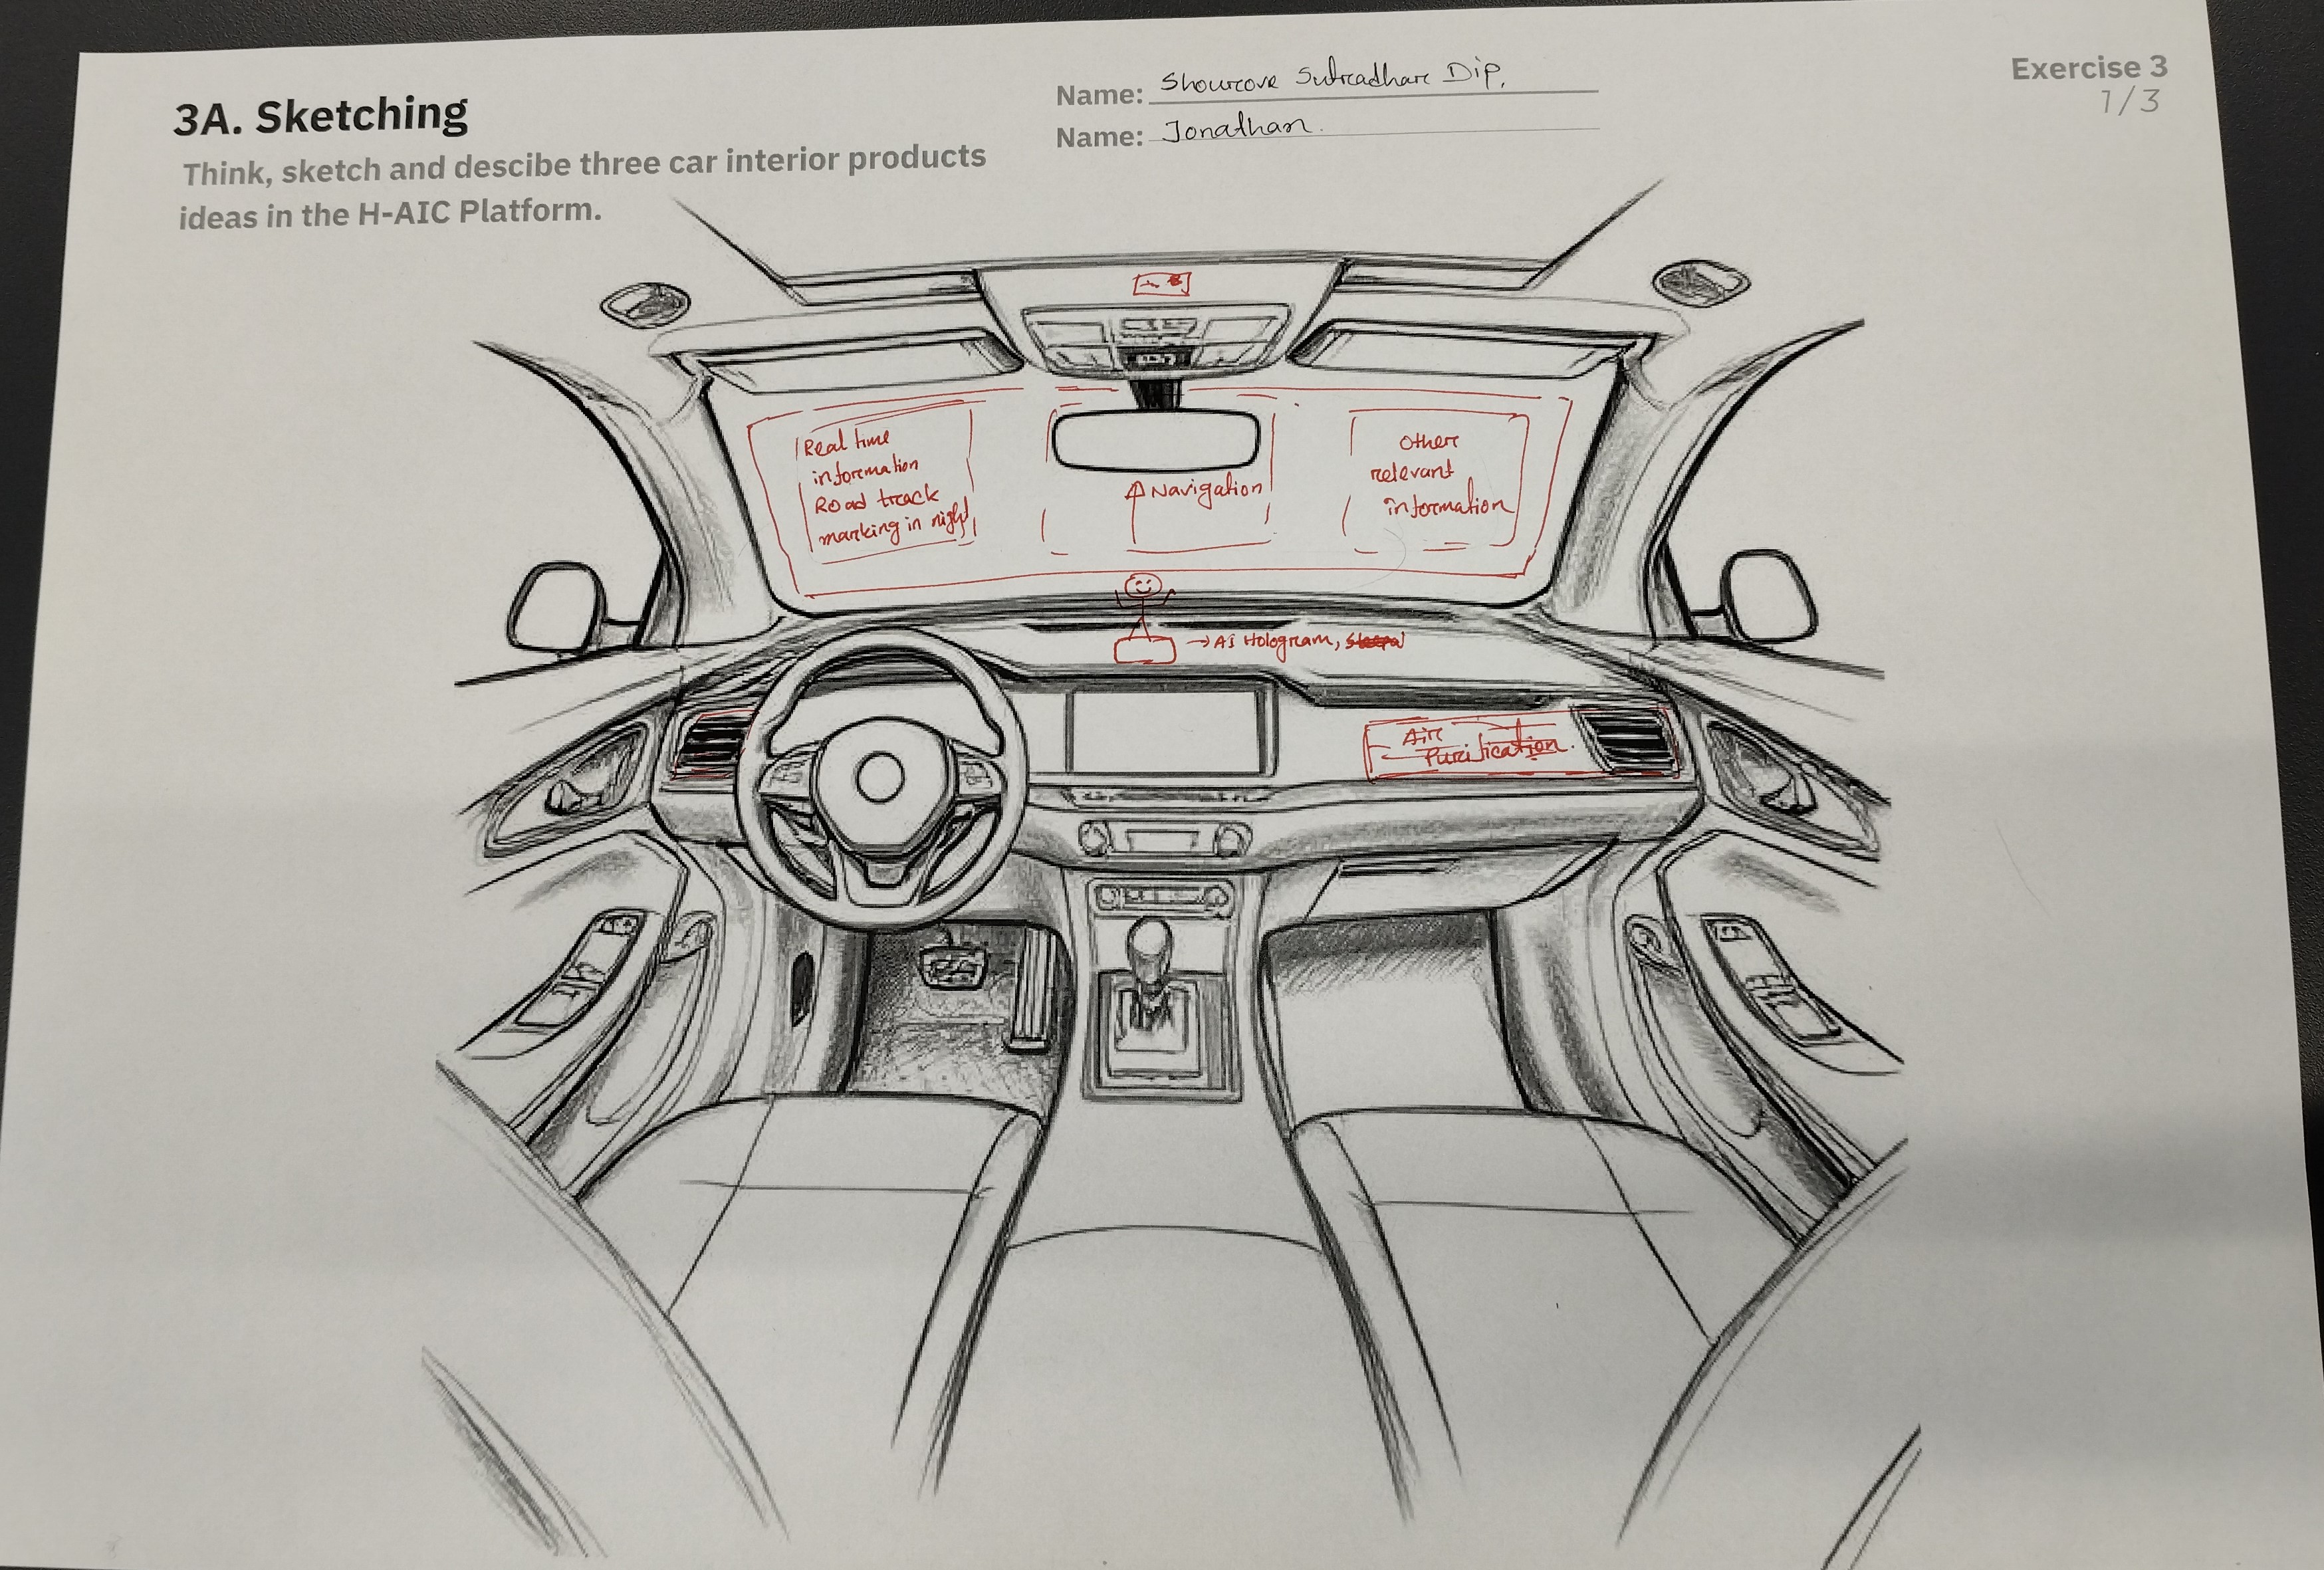 3A. Sketching
Think, sketch and descibe three car interior products
ideas in the H-AIC Platform.
Name: Shourove Sutradhar Dip.
Name: Jonathan.
Exercise 3
1/3
Real time
information
Road track
marking in night
Navigation
Other
relevant
information
→ Ai Hologram,
Air
Purification.